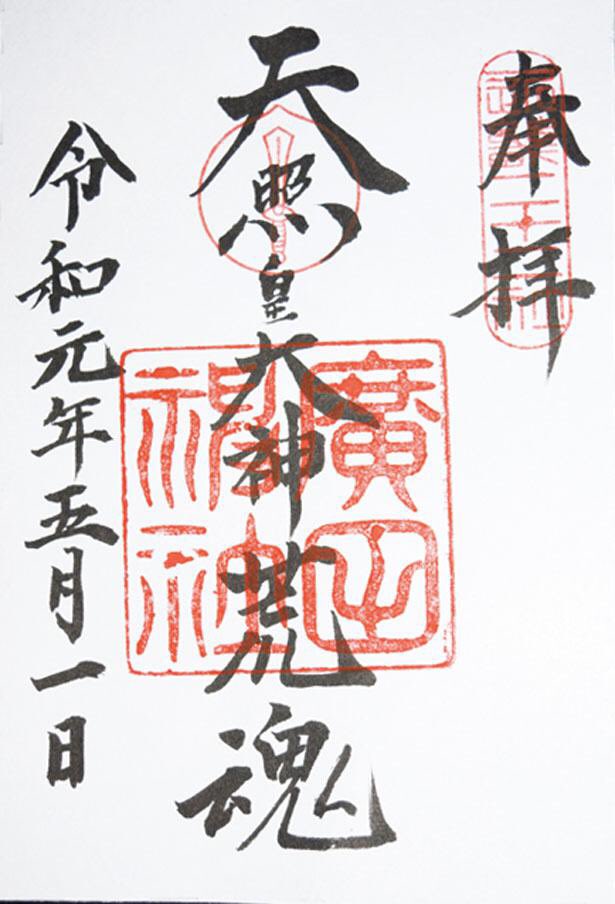 奉拝
天照皇大神荒魂
廣田神社
令和元年五月一日